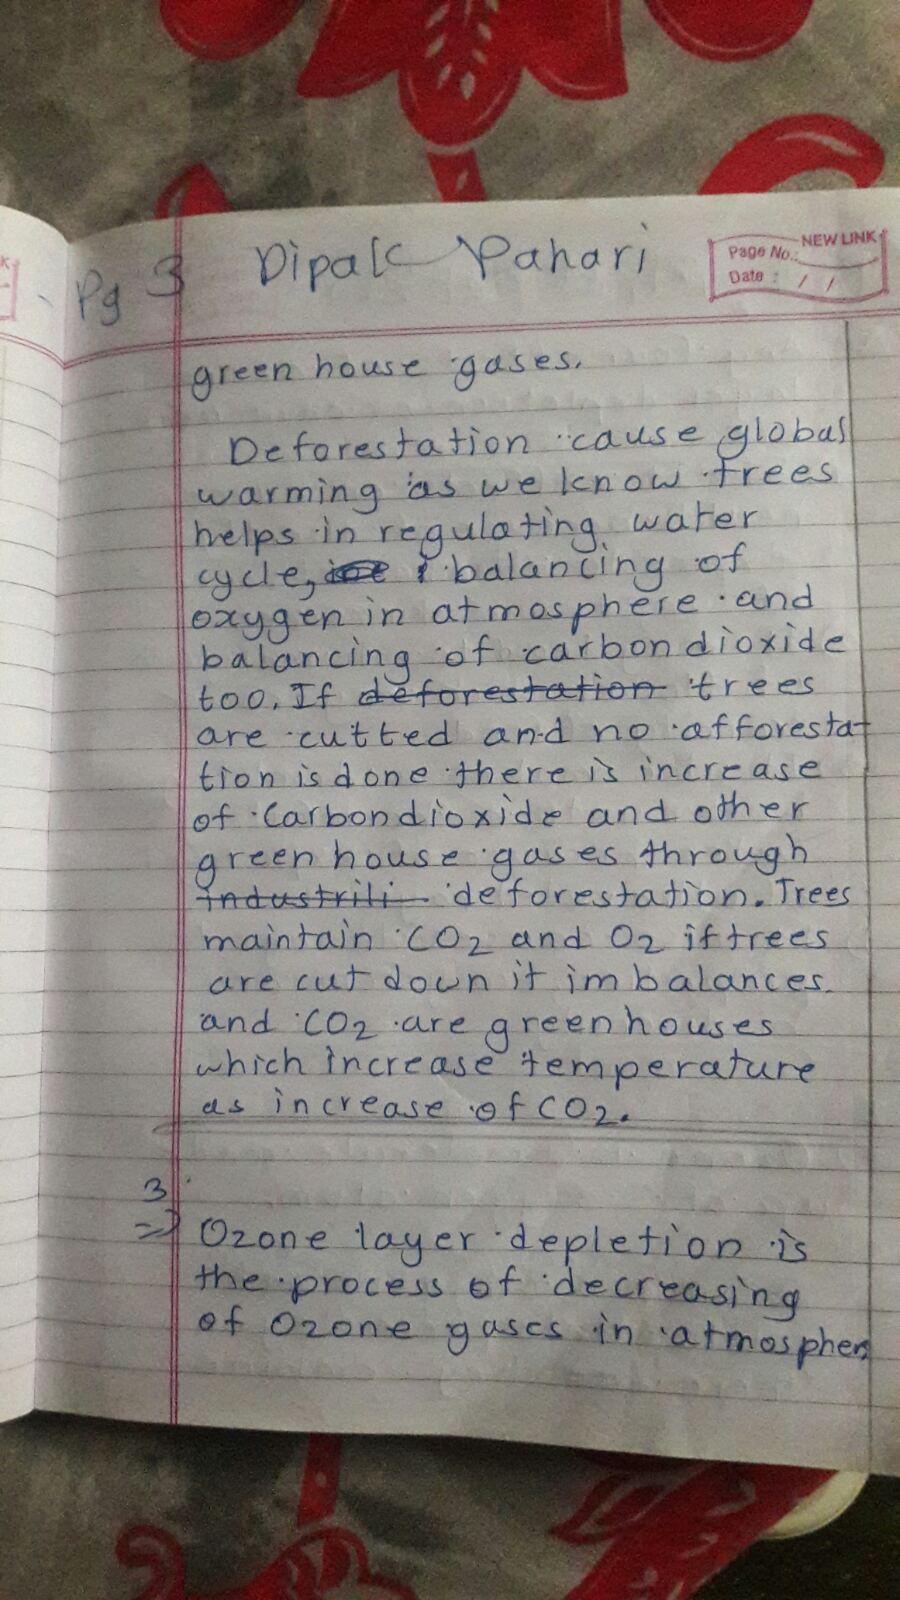 Pg 3 Dipak Pahari
NEW LINK
Page No.:
Date : / /
green house gases.
Deforestation cause global
warming as we know trees
helps in regulating water
cycle, balancing of
oxygen in atmosphere and
balancing of carbondioxide
too. If deforestation trees
are cutted and no afforestat
tion is done there is increase
of Carbondioxide and other
green house gases through
industrili deforestation. Trees
maintain CO2 and O2 if trees
are cut down it imbalances.
and CO2 are greenhouses
which increase temperature
as increase of CO2.
3
=> Ozone layer depletion is
the process of decreasing
of Ozone gases in atmospher